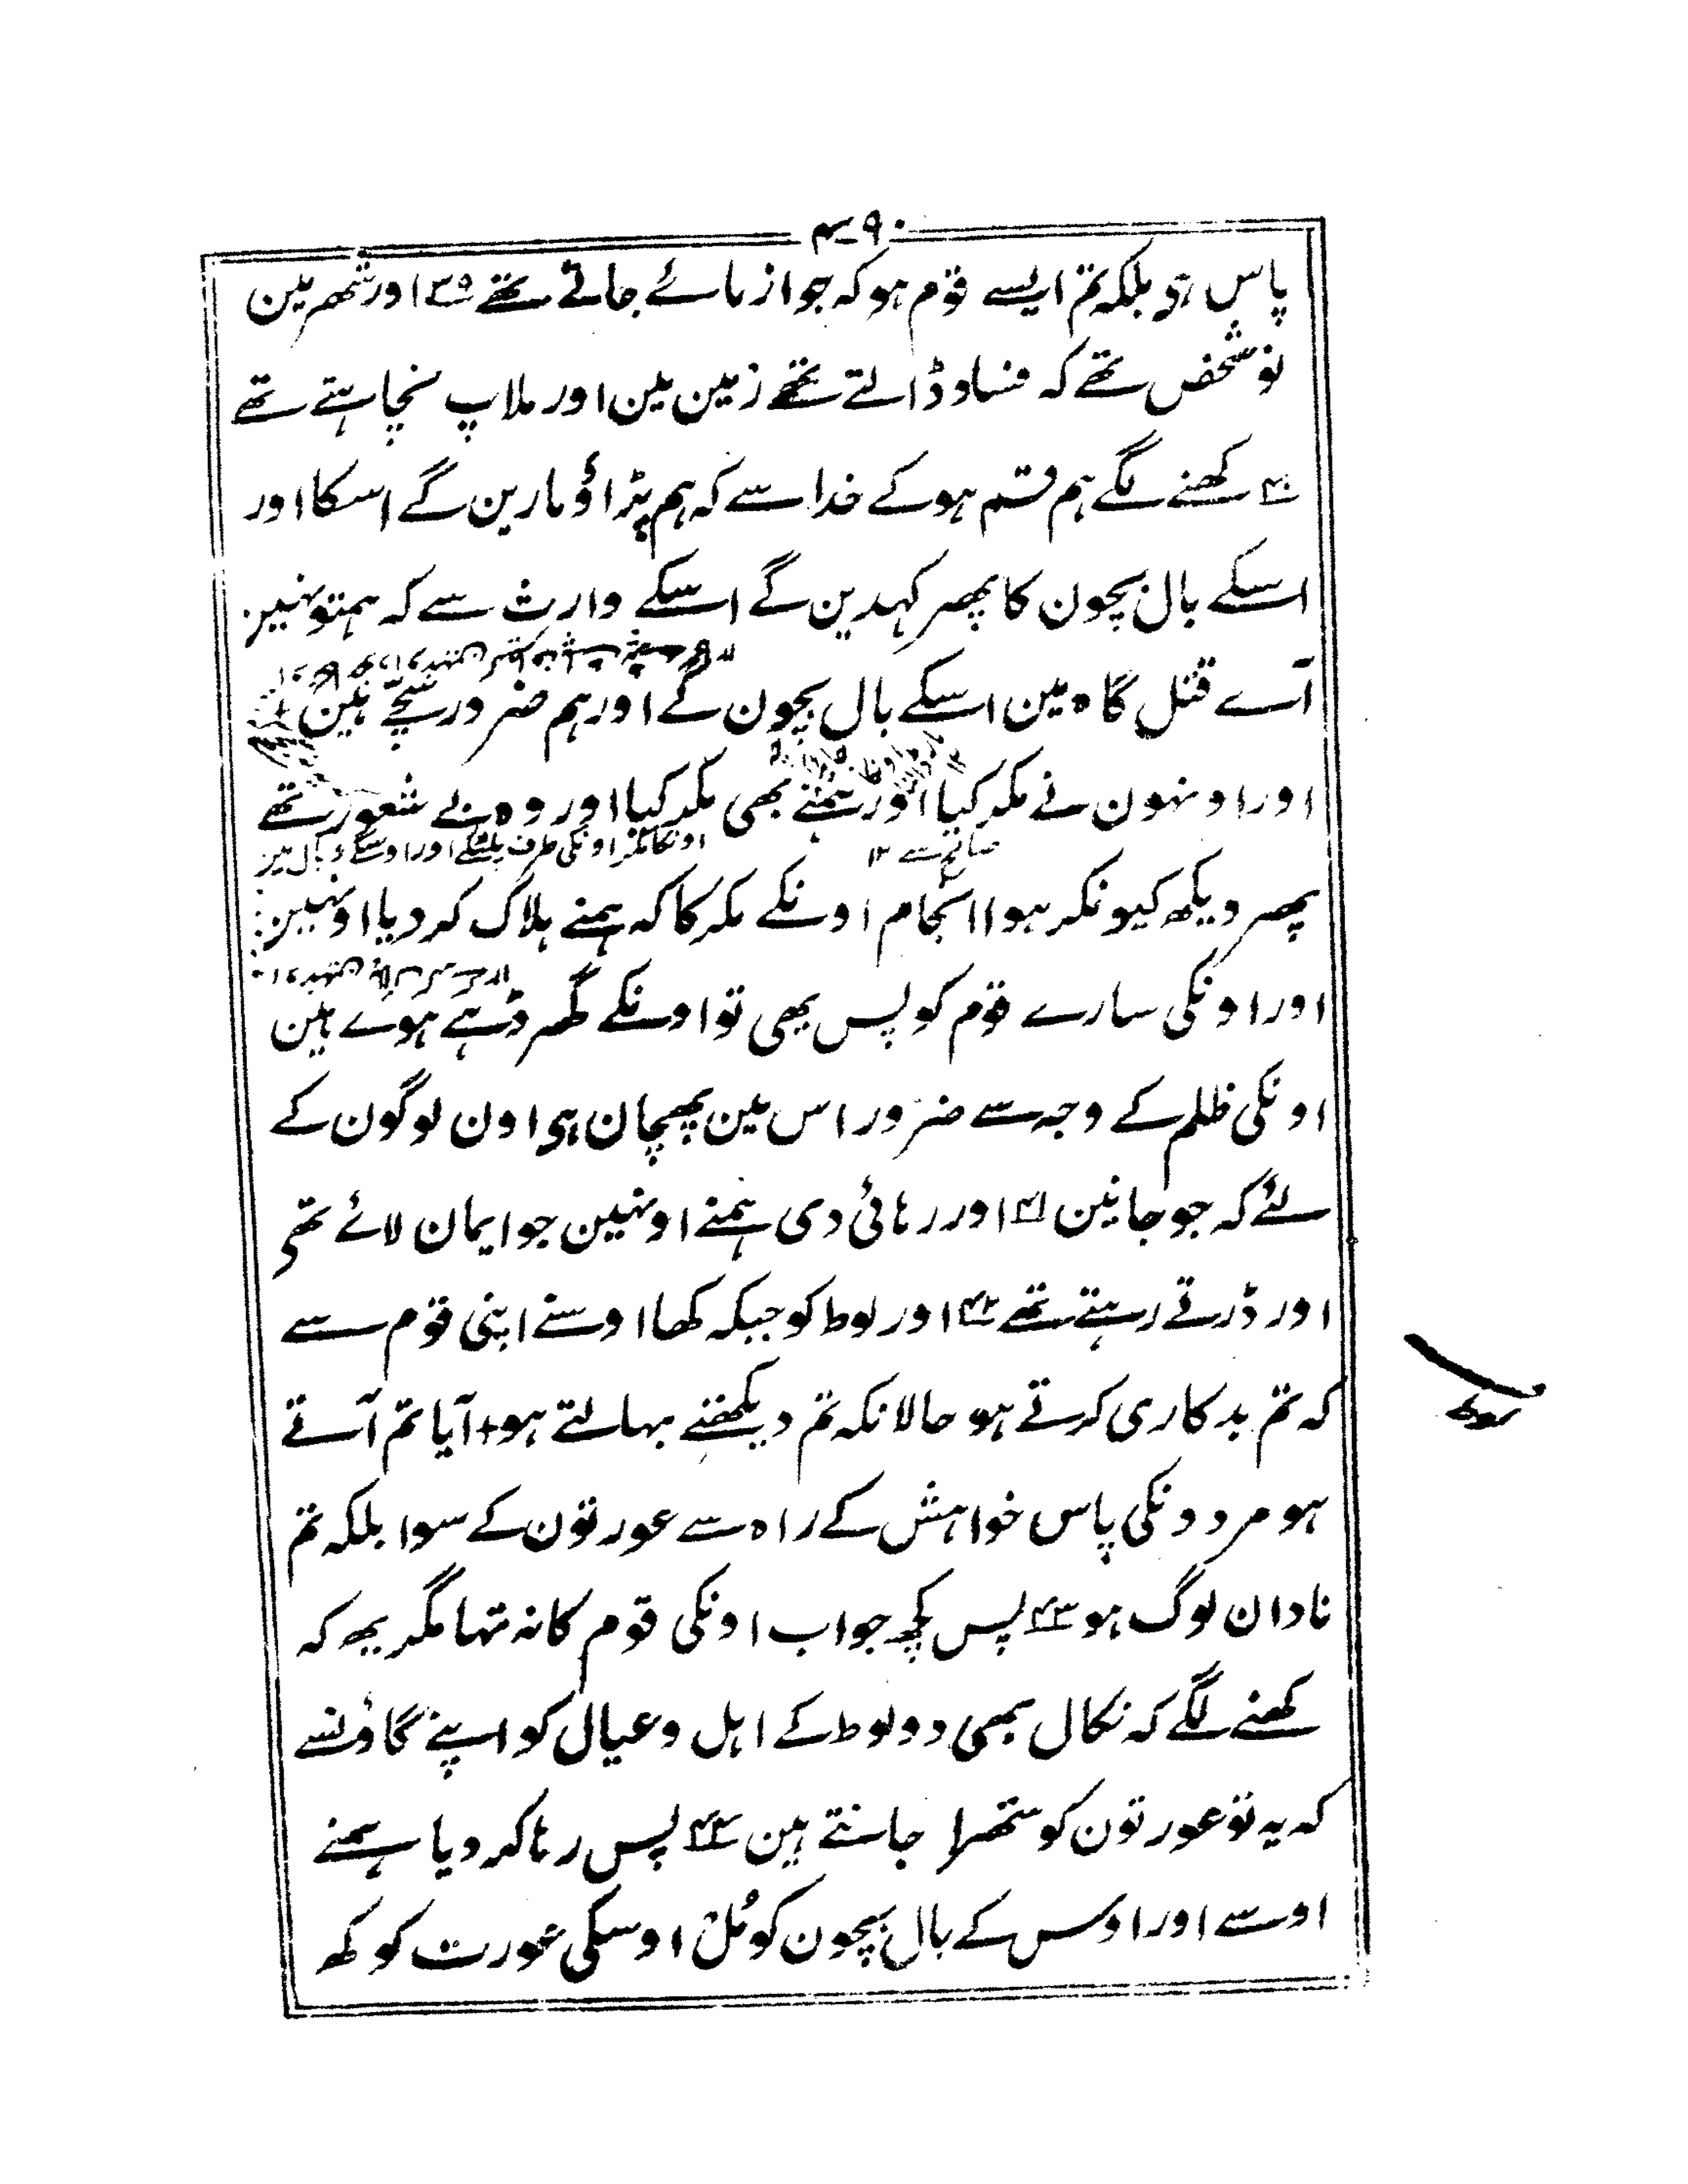 ۴۹۰
پاس ہی بلکہ تم ایسے قوم ہو کہ جو ازمائے جاتے تھے ۳۹ اور شھر مین
نو شخص تھے کہ فساد ڈالتے تھے زمین مین اور ملاپ نچاہتے تھے
۴۰ کھنے لگے ہم قسم ہو کے خدا سے کہ ہم پڑاؤ مارین گے اسکا اور
اسکے بال بچون کا پھر کہدین گے اسکے وارث سے کہ ہمتو نہین
آے قتل گاہ مین اسکے بال بچون کے اور ہم ضرور سچّے ہین
اور اونہون نے مکر کیا اور ہمنے بھی مکر کیا اور وہ بے شعور تھے
صالح سے ۱۲
اونکا مکر اونکی طرف پلٹکے اور اوسکے وبال مین
پھر دیکھ کیونکر ہوا انجام اونکے مکر کا کہ ہمنے ہلاک کر دیا اونہین
اور اونکی سارے قوم کو پس یھی تو اونکے گھر ڈہے ہوے ہین
اونکی ظلم کے وجہ سے ضرور اس مین پھچان ہی اون لوگون کے
لئے کہ جو جانین ۴۱ اور رہائی دی ہمنے اونہین جو ایمان لائے تھی
اور ڈرتے رہتے تھے ۴۲ اور لوط کو جبکہ کھا اوسنے اپنی قوم سے
کہ تم بدکاری کرتے ہو حالانکہ تم دیکھتے بہالتے ہو + آیا تم آتے
ہو مردونکی پاس خواہش کے راہ سے عورتون کے سوا بلکہ تم
نادان لوگ ہو ۴۳ پس کچھ جواب اونکی قوم کا نہ تہا مگر یھ کہ
کھنے لگے کہ نکال بھی دو لوط کے اہل و عیال کو اپنے گاؤنسے
کہ یہ تو عورتون کو ستھرا جانتے ہین ۴۴ پس رہا کر دیا ہمنے
اوسے اور اوس کے بال بچون کو مُل اوسکی عورت کو کھ